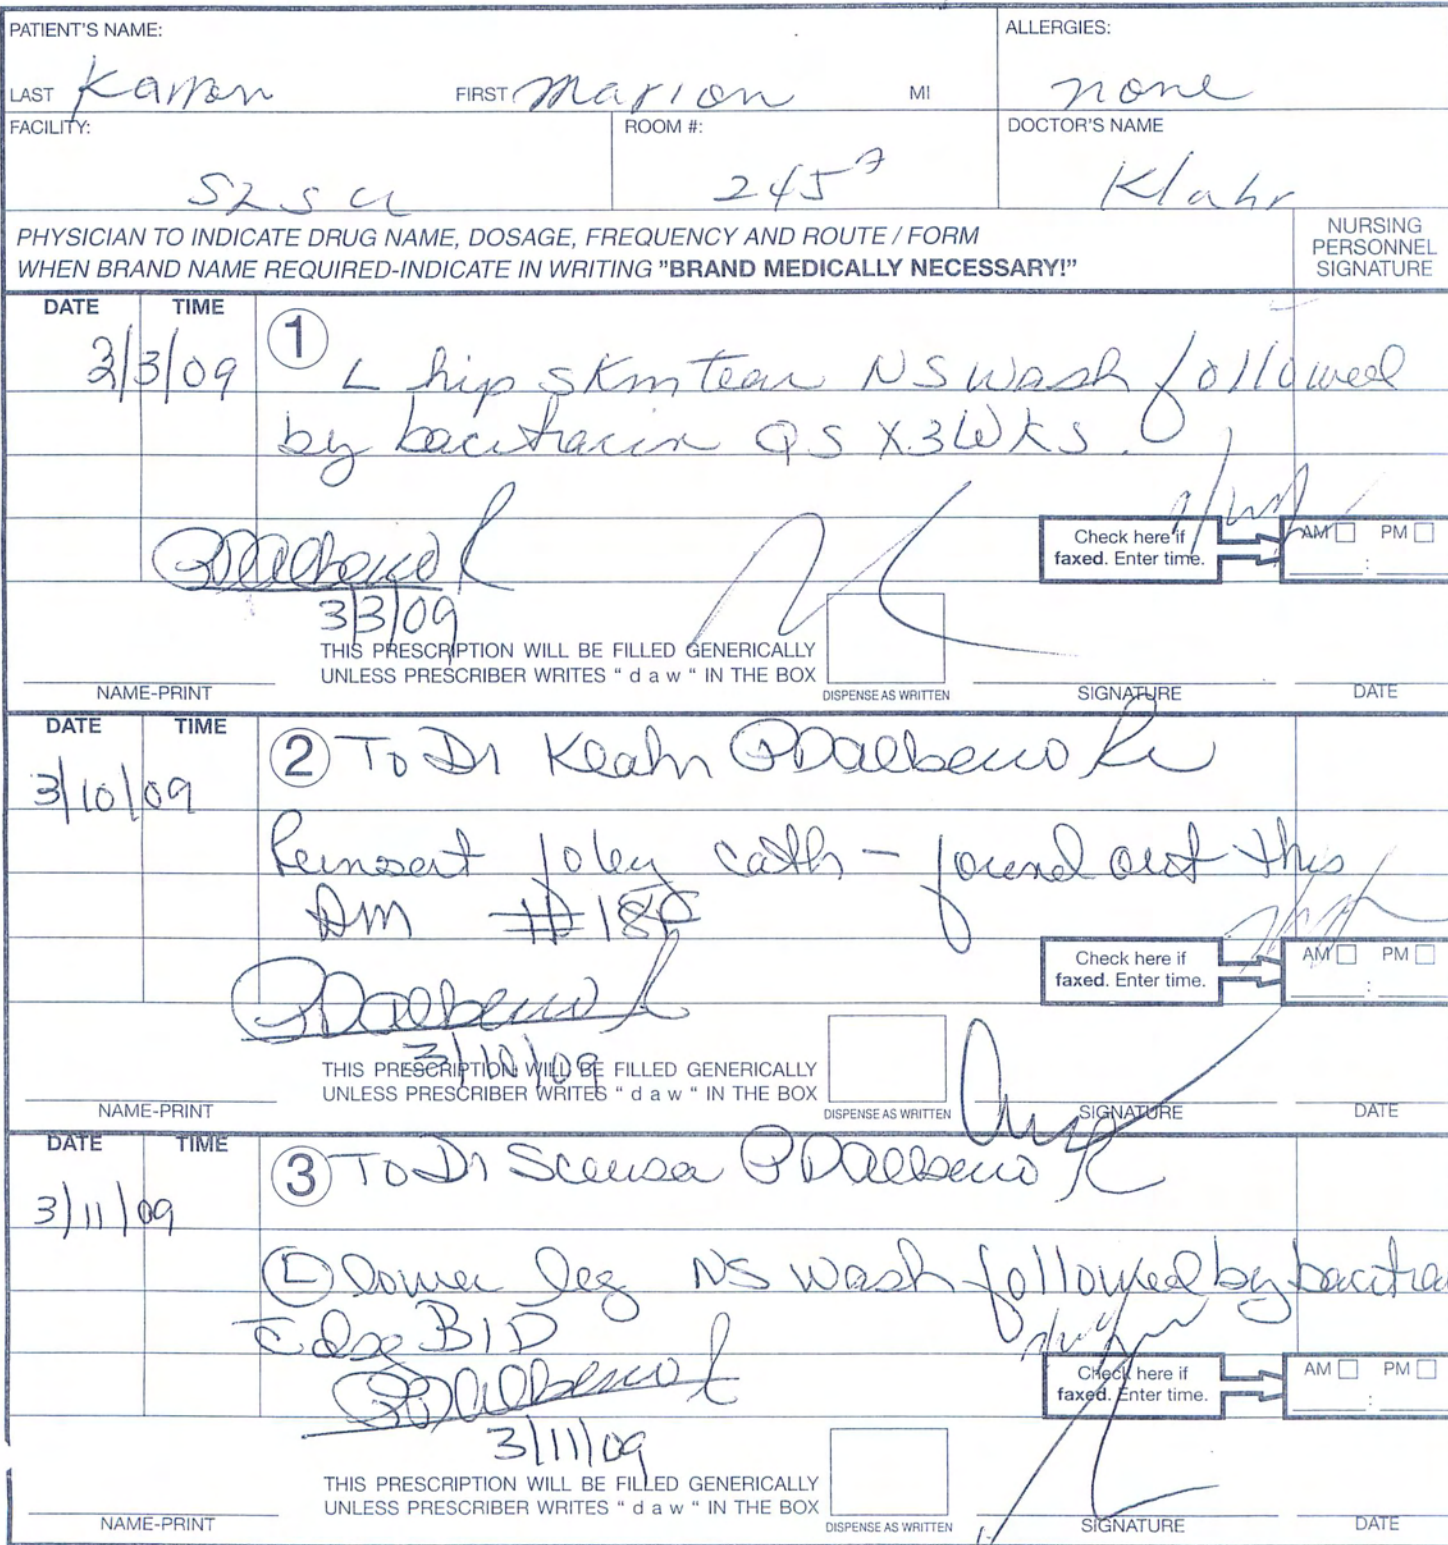 PATIENT'S NAME:
ALLERGIES:
LAST Karron FIRST Marion MI
none
FACILITY:
ROOM #:
DOCTOR'S NAME
245
Klahr
PHYSICIAN TO INDICATE DRUG NAME, DOSAGE, FREQUENCY AND ROUTE / FORM
WHEN BRAND NAME REQUIRED-INDICATE IN WRITING "BRAND MEDICALLY NECESSARY!"
NURSING
PERSONNEL
SIGNATURE
DATE TIME
3/3/09
1
L hip skin tear NS wash followed
by bacitracin QS X3WKS.
Check here if
faxed. Enter time.
AM PM
:
PDalbeno R
3/3/09
THIS PRESCRIPTION WILL BE FILLED GENERICALLY
UNLESS PRESCRIBER WRITES " d a w " IN THE BOX
NAME-PRINT
DISPENSE AS WRITTEN
SIGNATURE
DATE
DATE TIME
3/10/09
2 To Dr Klahr PDalbeno Rn
Reinsert foley cath - found out this
AM #18F
Check here if
faxed. Enter time.
AM PM
:
PDalbeno R
3/10/09
THIS PRESCRIPTION WILL BE FILLED GENERICALLY
UNLESS PRESCRIBER WRITES " d a w " IN THE BOX
NAME-PRINT
DISPENSE AS WRITTEN
SIGNATURE
DATE
DATE TIME
3/11/09
3 To Dr Scensa PDalbeno R
L lower leg NS wash followed by bacitra
c dsg BID
Check here if
faxed. Enter time.
AM PM
:
PDalbeno R
3/11/09
THIS PRESCRIPTION WILL BE FILLED GENERICALLY
UNLESS PRESCRIBER WRITES " d a w " IN THE BOX
NAME-PRINT
DISPENSE AS WRITTEN
SIGNATURE
DATE